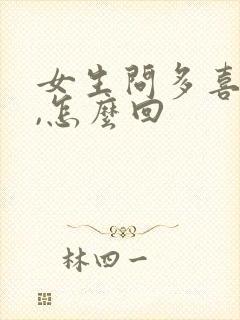 女生問多喜
,怎麼回
林四一